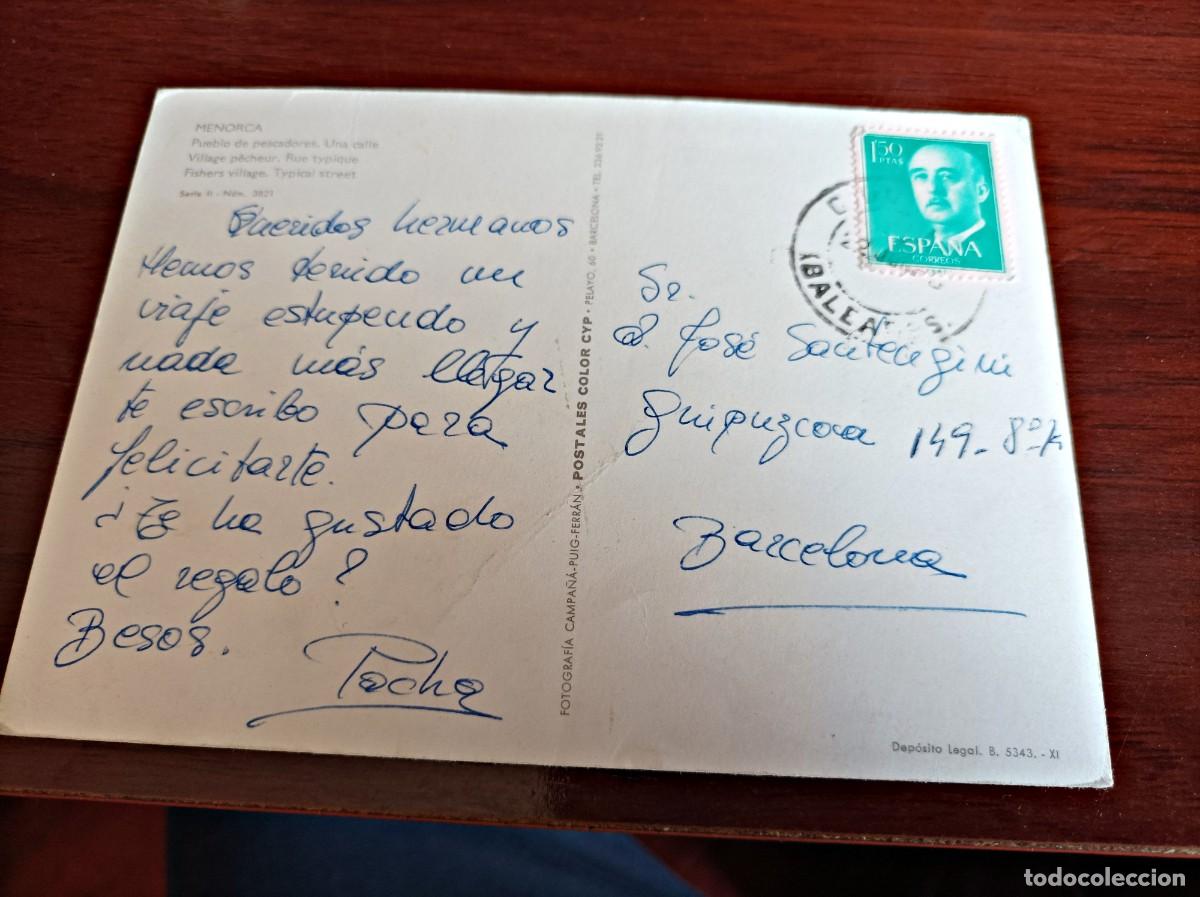 MENORCA
Pueblo de pescadores. Una calle
Village pêcheur. Rue typique
Fishers village. Typical street
Serie II - Núm. 3821
Queridos hermanos
Hemos tenido un
viaje estupendo y
nada más llegar
te escribo para
felicitarte.
¿Te ha gustado
el regalo?
Besos.
Pocha
FOTOGRAFÍA CAMPAÑÁ-PUIG-FERRÁN • POSTALES COLOR CYP • PELAYO, 60 • BARCELONA • TEL.
1'50
PTAS
ESPAÑA
CORREOS
(BALEA
Sr.
D. José
Guipuzcoa 149-8º
Barcelona
Depósito Legal. B. 5343. - XI
todocoleccion